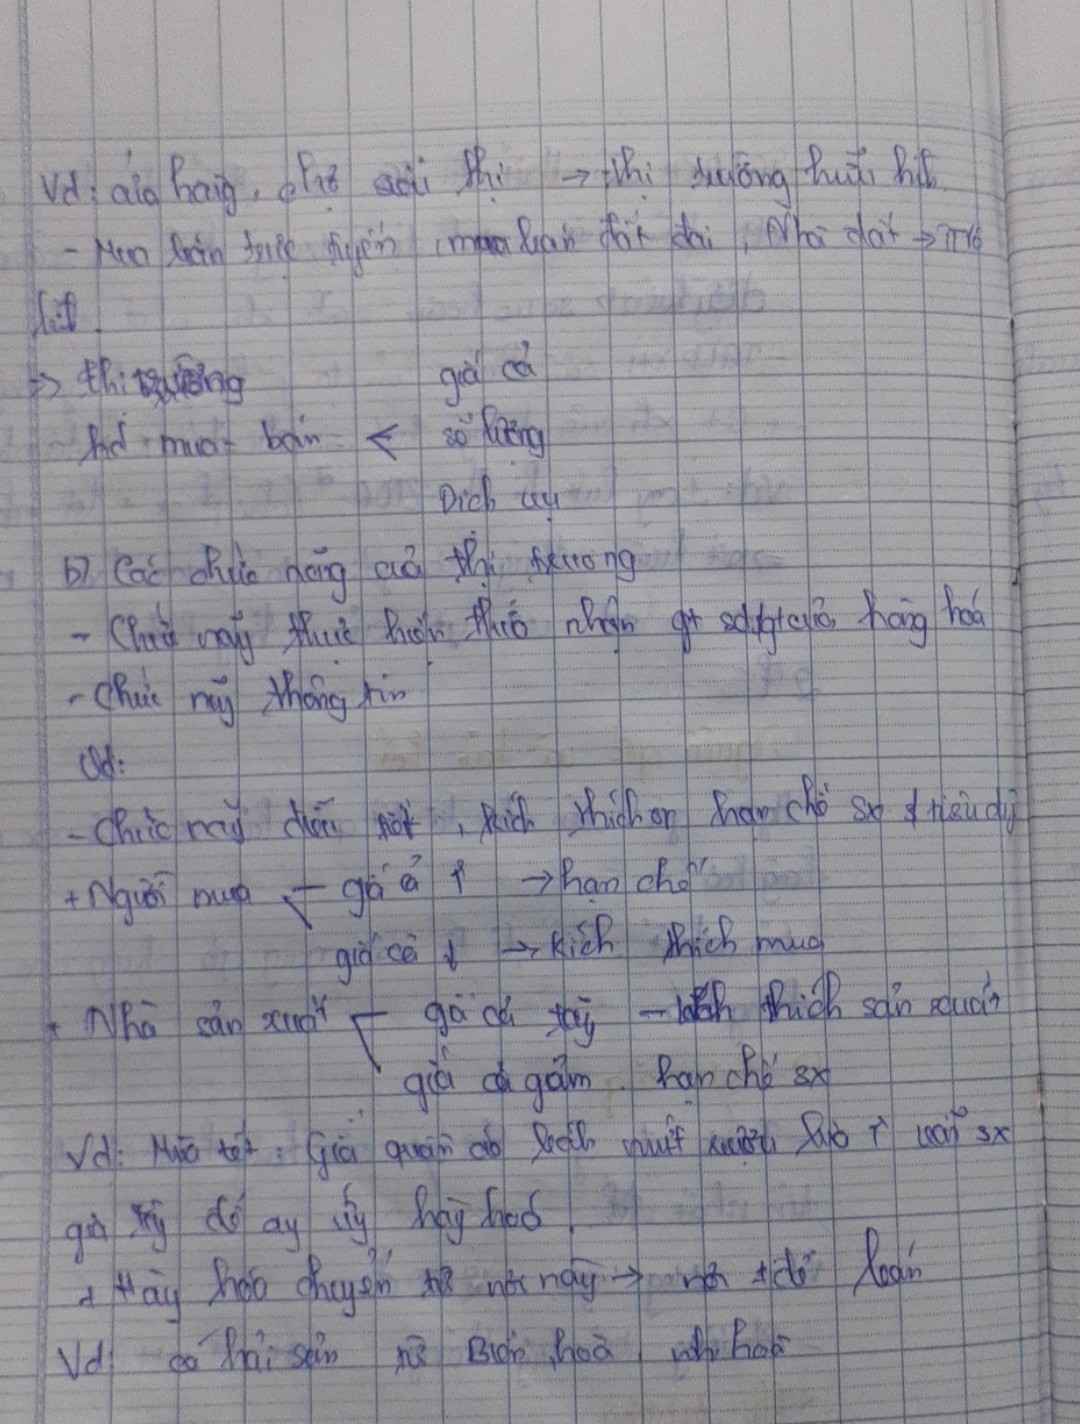 Vd: cửa hàng, chợ siêu thị → thị trường hữu hình
- Mua bán trực tuyến, mua bán đất đai, Nhà đất →
=> thị trường giá cả
hđ mua - bán < số lượng
Dịch vụ
b) Các chức năng của thị trường
- Chức năng thực hiện thừa nhận gt sd, gt của hàng hoá
- Chức năng thông tin
Vd:
- Chức năng điều tiết, kích thích or hạn chế sx & tiêu dùng
+ Người mua giá cả ↑ → hạn chế
giá cả ↓ → kích thích mua
+ Nhà sản xuất giá cả tăng - kích thích sản xuất
giá cả giảm hạn chế sx
Vd: Mùa tết: Giá quần áo bánh mứt ↑ sx
giá hàng hoá
+ Hàng hoá chuyển từ nơi này → nơi
Vd: cá hải sản từ Biên hoà